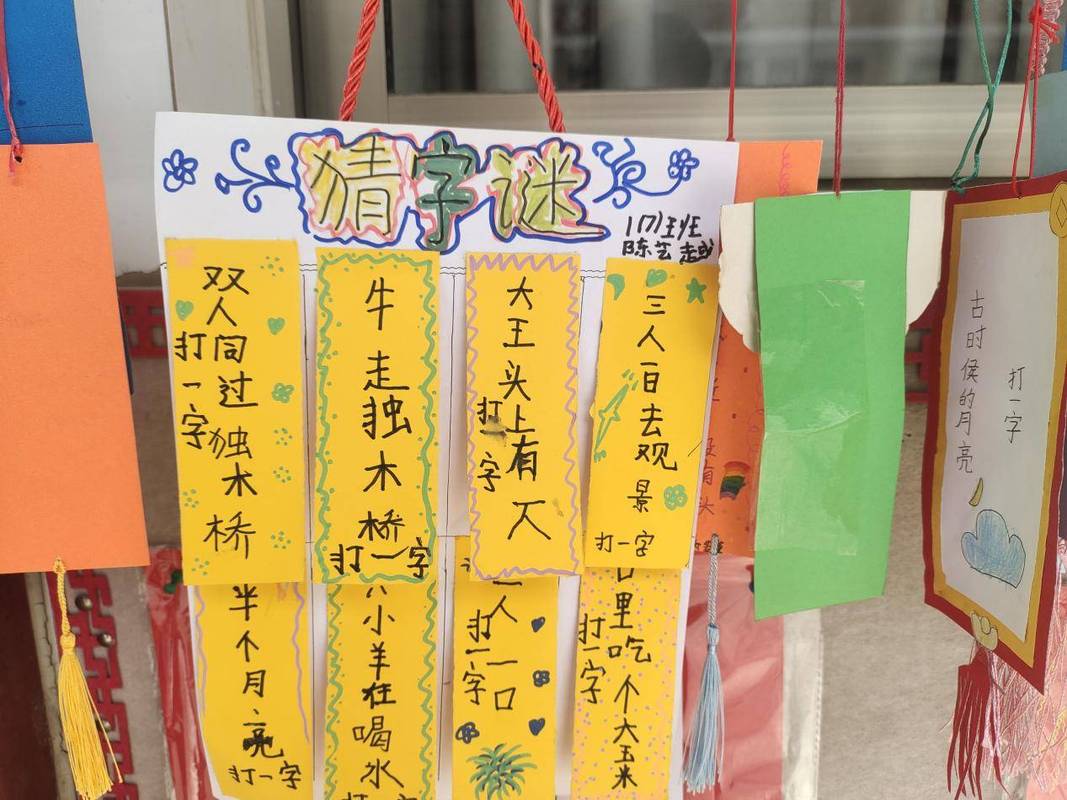 猜字谜
1(7)班
陈艺越
双人同过独木桥
打一字
牛走独木桥
打一字
大王头上有人
打一字
三人一日去观景
打一字
半个月亮
打一字
小羊在喝水
人一口
打一字
里吃个大玉米
打一字
有头
打一字
古时侯的月亮